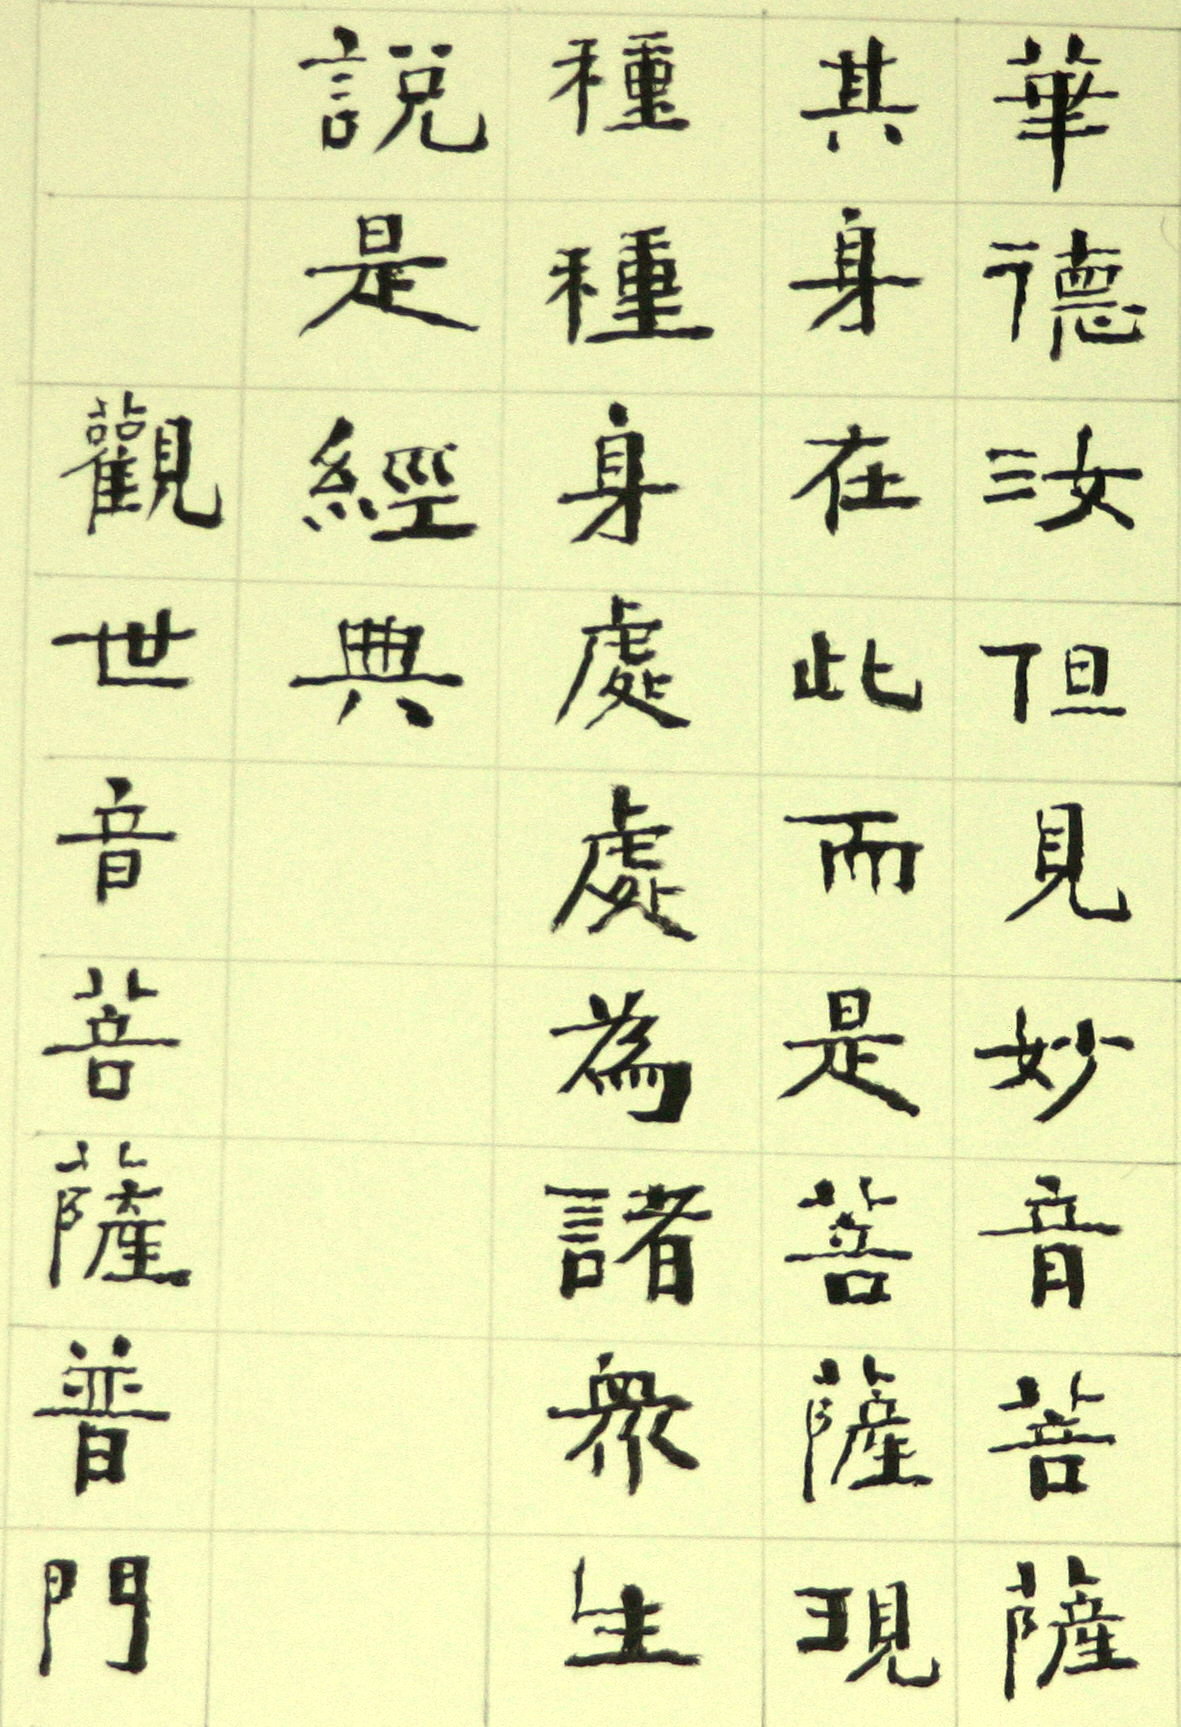 華德汝但見妙音菩薩
其身在此而是菩薩現
種種身處處為諸眾生
說是經典
觀世音菩薩普門